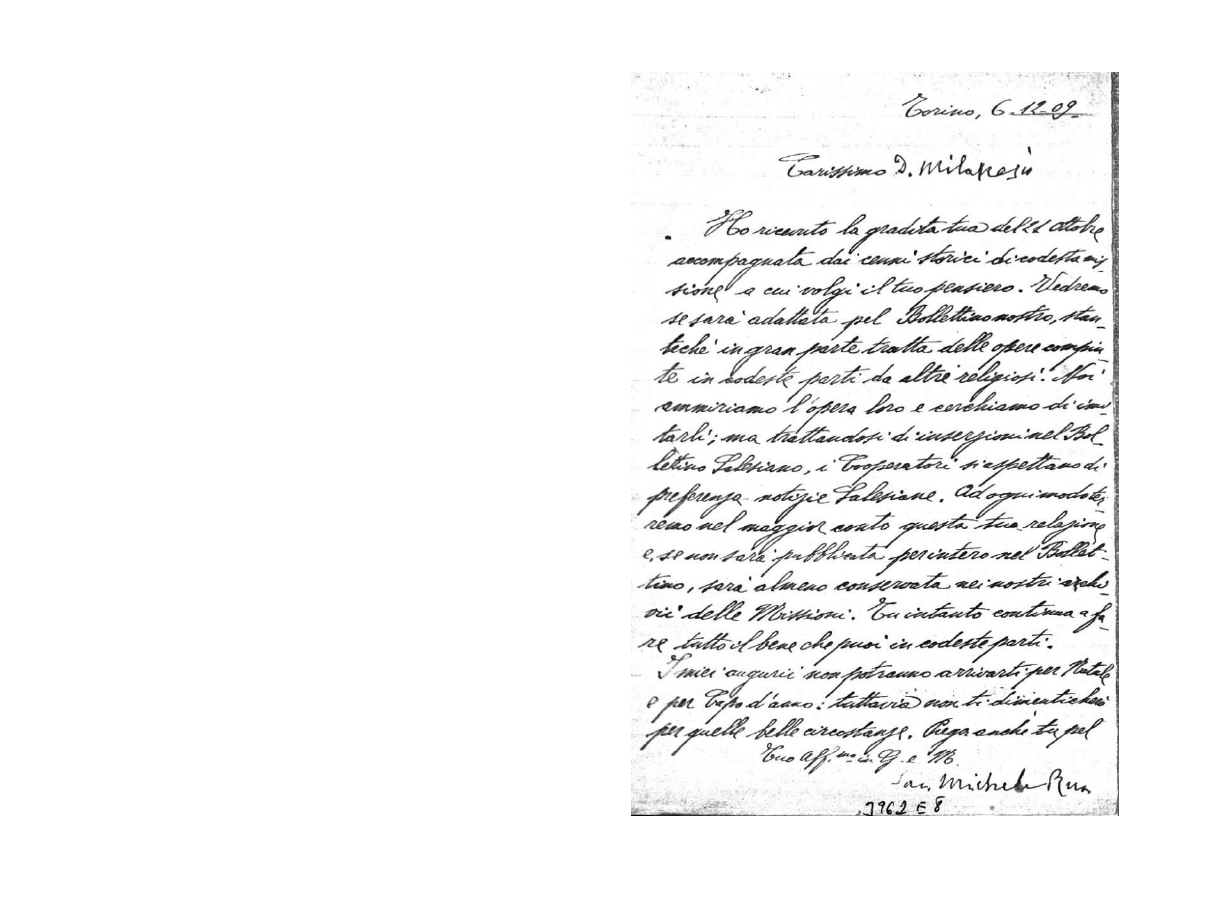 Torino, 6-12-09
Carissimo D. Milanesio
Ho ricevuto la gradita tua del 21 ottobre
accompagnata dai cenni storici di codesta mis,
sione a cui volgi il tuo pensiero. Vedremo
se sarà adattata pel Bollettino nostro, stan-
techè in gran parte tratta delle opere compiu-
te in codeste parti da altri religiosi. Noi
ammiriamo l'opera loro e cerchiamo di imi-
tarli; ma trattandosi di inserzioni nel Bol-
lettino Salesiano, i Cooperatori si aspettano di
preferenza notizie Salesiane. Ad ogni modo ter-
remo nel maggior conto questa tua relazione
e, se non sarà pubblicata per intero nel Bollet-
tino, sarà almeno conservata nei nostri archi-
vii delle Missioni. Tu intanto continua a fa-
re tutto il bene che puoi in codeste parti.
I miei augurii non potranno arrivarti per Natale
e per Capo d'anno: tuttavia non ti dimenticherò
per quelle belle circostanze. Prega anche tu pel
Tuo Aff.mo in G. e M.
Sac. Michele Rua
3962 E 8